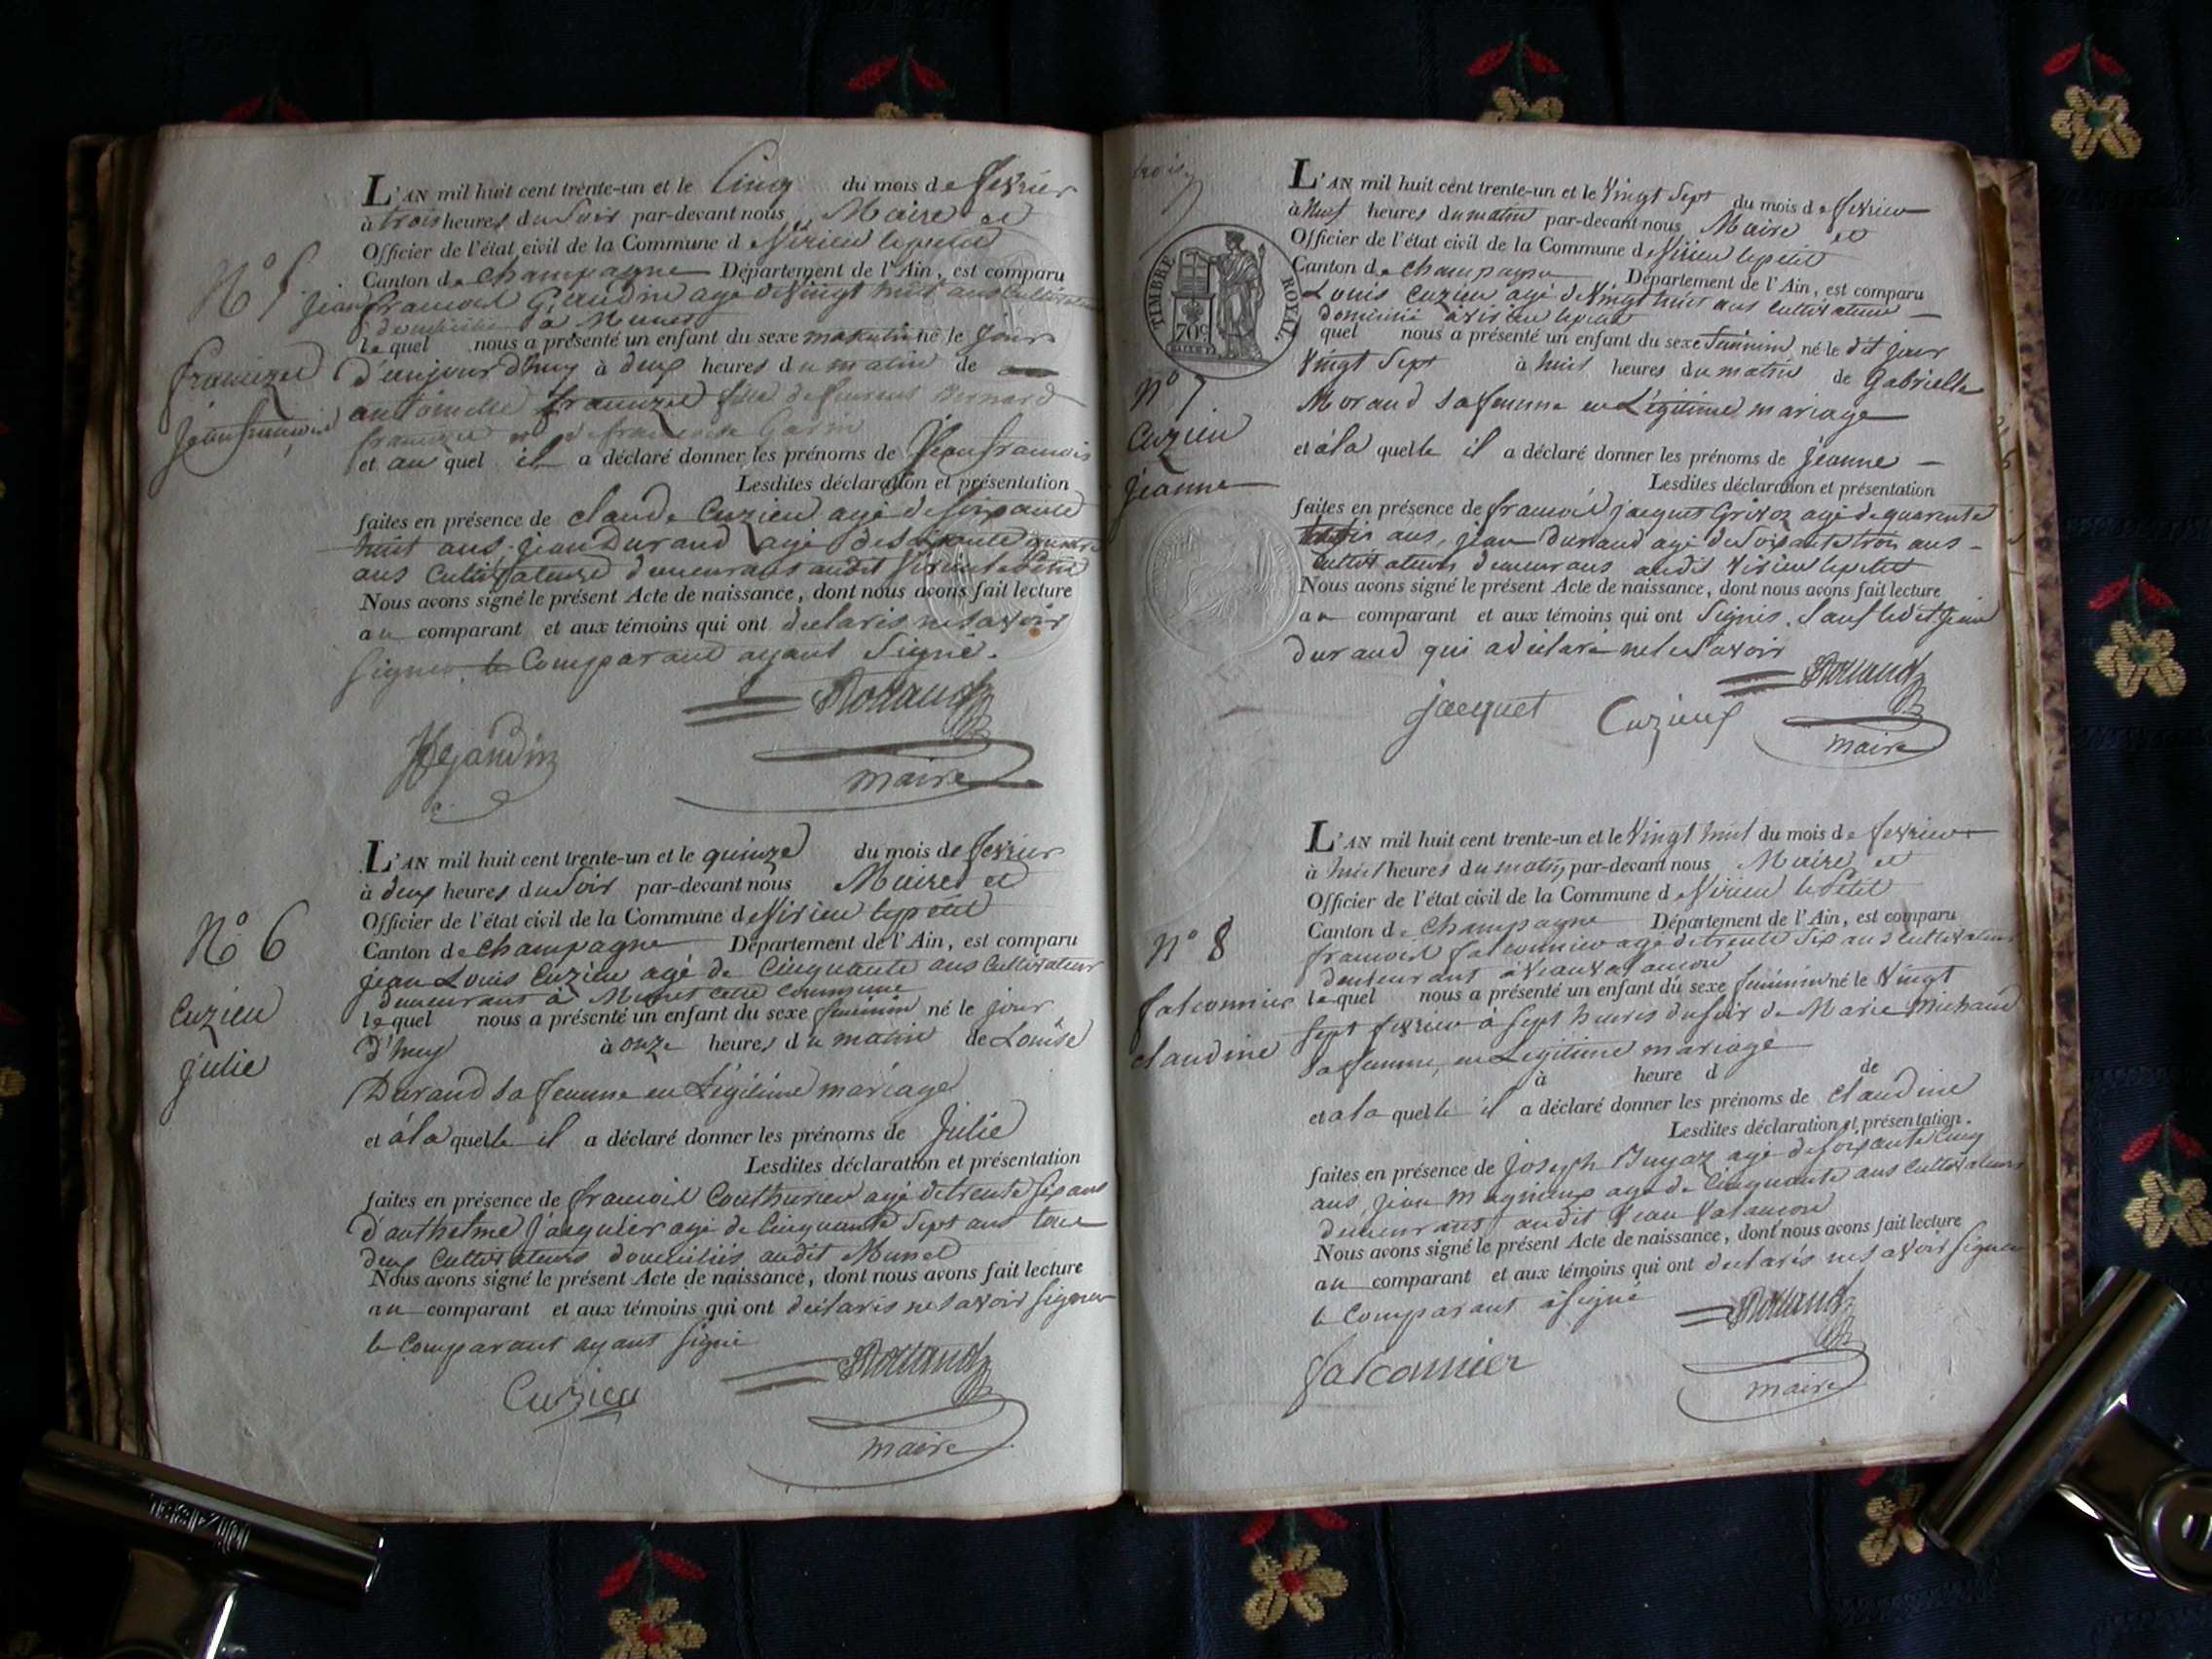 L'AN mil huit cent trente-un et le Cinq du mois de fevrier
à trois heures du Soir par-devant nous Maire et
Officier de l'état civil de la Commune de Virieu le petit
Canton de Champagne Département de l'Ain, est comparu
N° 5 Jean francois agé de Vingt huit ans Cultivateur
domicilié à Munet
lequel nous a présenté un enfant du sexe masculin né le jour
d'aujourd'huy à deux heures du matin de
Jean francois antoinette fille de Bernard
et au quel il a déclaré donner les prénoms de Jean francois
Lesdites déclaration et présentation
faites en présence de Claude Cuzieu agé de soixante
huit ans, jean Durand agé de soixante
ans Cultivateurs demeurans audit Virieu le Petit
Nous avons signé le présent Acte de naissance, dont nous avons fait lecture
au comparant et aux témoins qui ont declarés ne savoir
signer le Comparant ayant Signé.
maire
L'AN mil huit cent trente-un et le quinze du mois de fevrier
à deux heures du Soir par-devant nous Maire et
Officier de l'état civil de la Commune de Virieu le petit
N° 6 Canton de Champagne Département de l'Ain, est comparu
jean Louis Cuzieu agé de Cinquante ans Cultivateur
demeurant à Munet cette Commune
Cuzieu lequel nous a présenté un enfant du sexe feminin né le jour
julie d'huy à onze heures du matin de Louise
Durand sa femme en Légitime mariage
et à la quelle il a déclaré donner les prénoms de Julie
Lesdites déclaration et présentation
faites en présence de francois agé de trente six ans
d'anthelme agé de Cinquante Sept ans tous
deux Cultivateurs domiciliés audit Munet
Nous avons signé le présent Acte de naissance, dont nous avons fait lecture
au comparant et aux témoins qui ont declarés ne savoir signer
le Comparant ayant signé
Cuzieu
maire
trois
L'AN mil huit cent trente-un et le Vingt Sept du mois de fevrier
à Neuf heures du matin par-devant nous Maire et
Officier de l'état civil de la Commune de Virieu le petit
Canton de Champagne Département de l'Ain, est comparu
TIMBRE ROYAL
70c
Louis Cuzieu agé de Vingt huit ans Cultivateur
domicilié à Virieu le petit
quel nous a présenté un enfant du sexe feminin né le dit jour
Vingt Sept à huit heures du matin de Gabrielle
N° 7 Morand sa femme en Légitime mariage
Cuzieu et à la quelle il a déclaré donner les prénoms de jeanne
jeanne Lesdites déclaration et présentation
faites en présence de francois jacquet agé de quarante
ans, jean Durand agé de soixante trois ans
Cultivateurs demeurans audit Virieu le petit
Nous avons signé le présent Acte de naissance, dont nous avons fait lecture
au comparant et aux témoins qui ont signés. Sauf ledit jean
durand qui a déclaré ne le savoir
jacquet Cuzieu
maire
L'AN mil huit cent trente-un et le Vingt huit du mois de fevrier
à huit heures du matin par-devant nous Maire et
Officier de l'état civil de la Commune de Virieu le Petit
N° 8 Canton de Champagne Département de l'Ain, est comparu
francois falconnier agé de trente six ans Cultivateur
demeurant à
falconnier lequel nous a présenté un enfant du sexe feminin né le Vingt
Sept fevrier à Sept heures du soir de Marie Michaud
claudine sa femme en Légitime mariage
à heure d de
et à la quelle il a déclaré donner les prénoms de claudine
Lesdites déclaration et présentation
faites en présence de joseph agé de soixante cinq
ans, jean agé de Cinquante ans Cultivateurs
demeurans audit
Nous avons signé le présent Acte de naissance, dont nous avons fait lecture
au comparant et aux témoins qui ont declarés ne savoir signer
le Comparant à signé
falconnier
maire